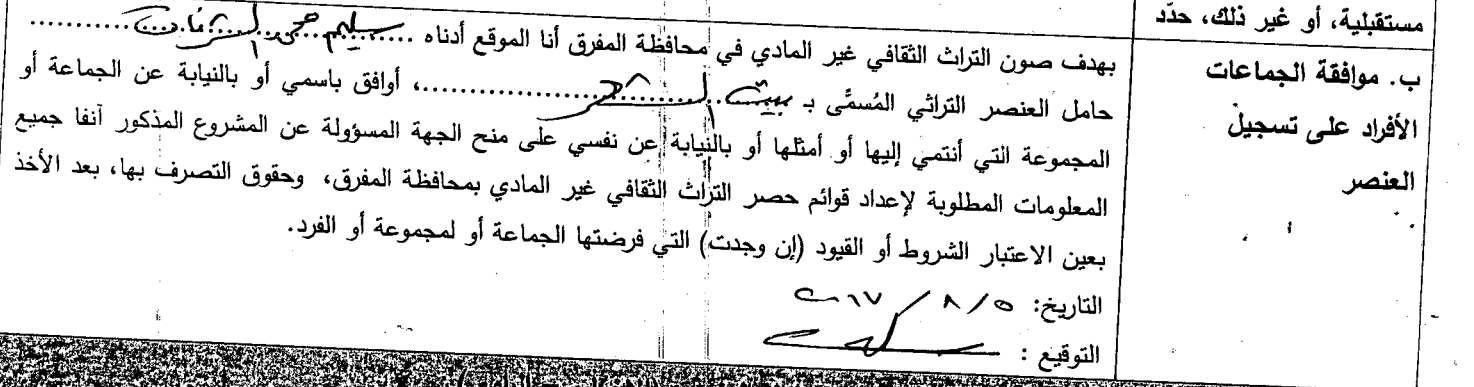 مستقبلية، أو غير ذلك، حدّد
ب. موافقة الجماعات
الأفراد على تسجيل
العنصر
بهدف صون التراث الثقافي غير المادي في محافظة المفرق أنا الموقع أدناه ......... سليم ...........
حامل العنصر التراثي المُسمَّى بـ بيت الشعر ....................، أوافق باسمي أو بالنيابة عن الجماعة أو
المجموعة التي أنتمي إليها أو أمثلها أو بالنيابة عن نفسي على منح الجهة المسؤولة عن المشروع المذكور آنفا جميع
المعلومات المطلوبة لإعداد قوائم حصر التراث الثقافي غير المادي بمحافظة المفرق، وحقوق التصرف بها، بعد الأخذ
بعين الاعتبار الشروط أو القيود (إن وجدت) التي فرضتها الجماعة أو لمجموعة أو الفرد.
التاريخ: ٥ / ٨ / ٢٠١٧
التوقيع :